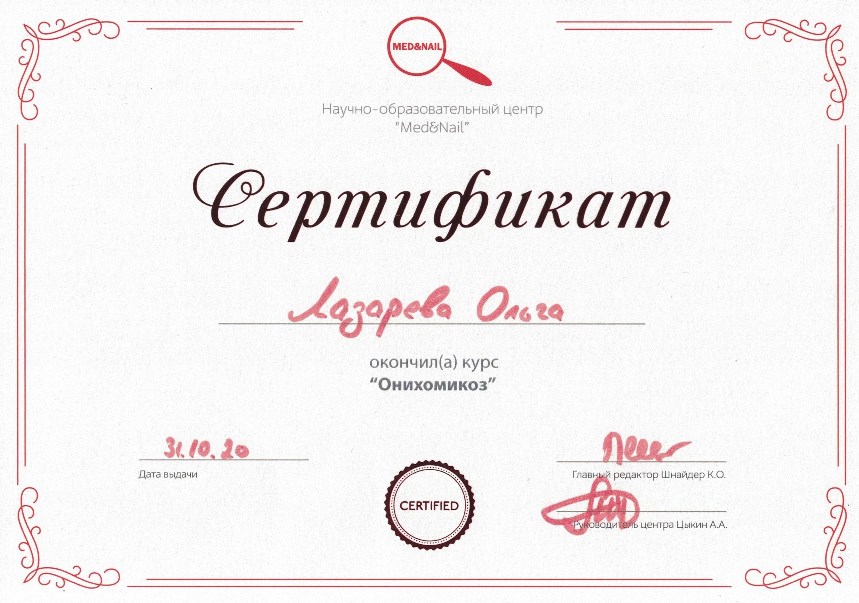 MED&NAIL
Научно-образовательный центр
"Med&Nail"
Сертификат
Лазарева Ольга
окончил(а) курс
“Онихомикоз”
31.10.20
Дата выдачи
Главный редактор Шнайдер К.О.
Руководитель центра Цыкин А.А.
CERTIFIED